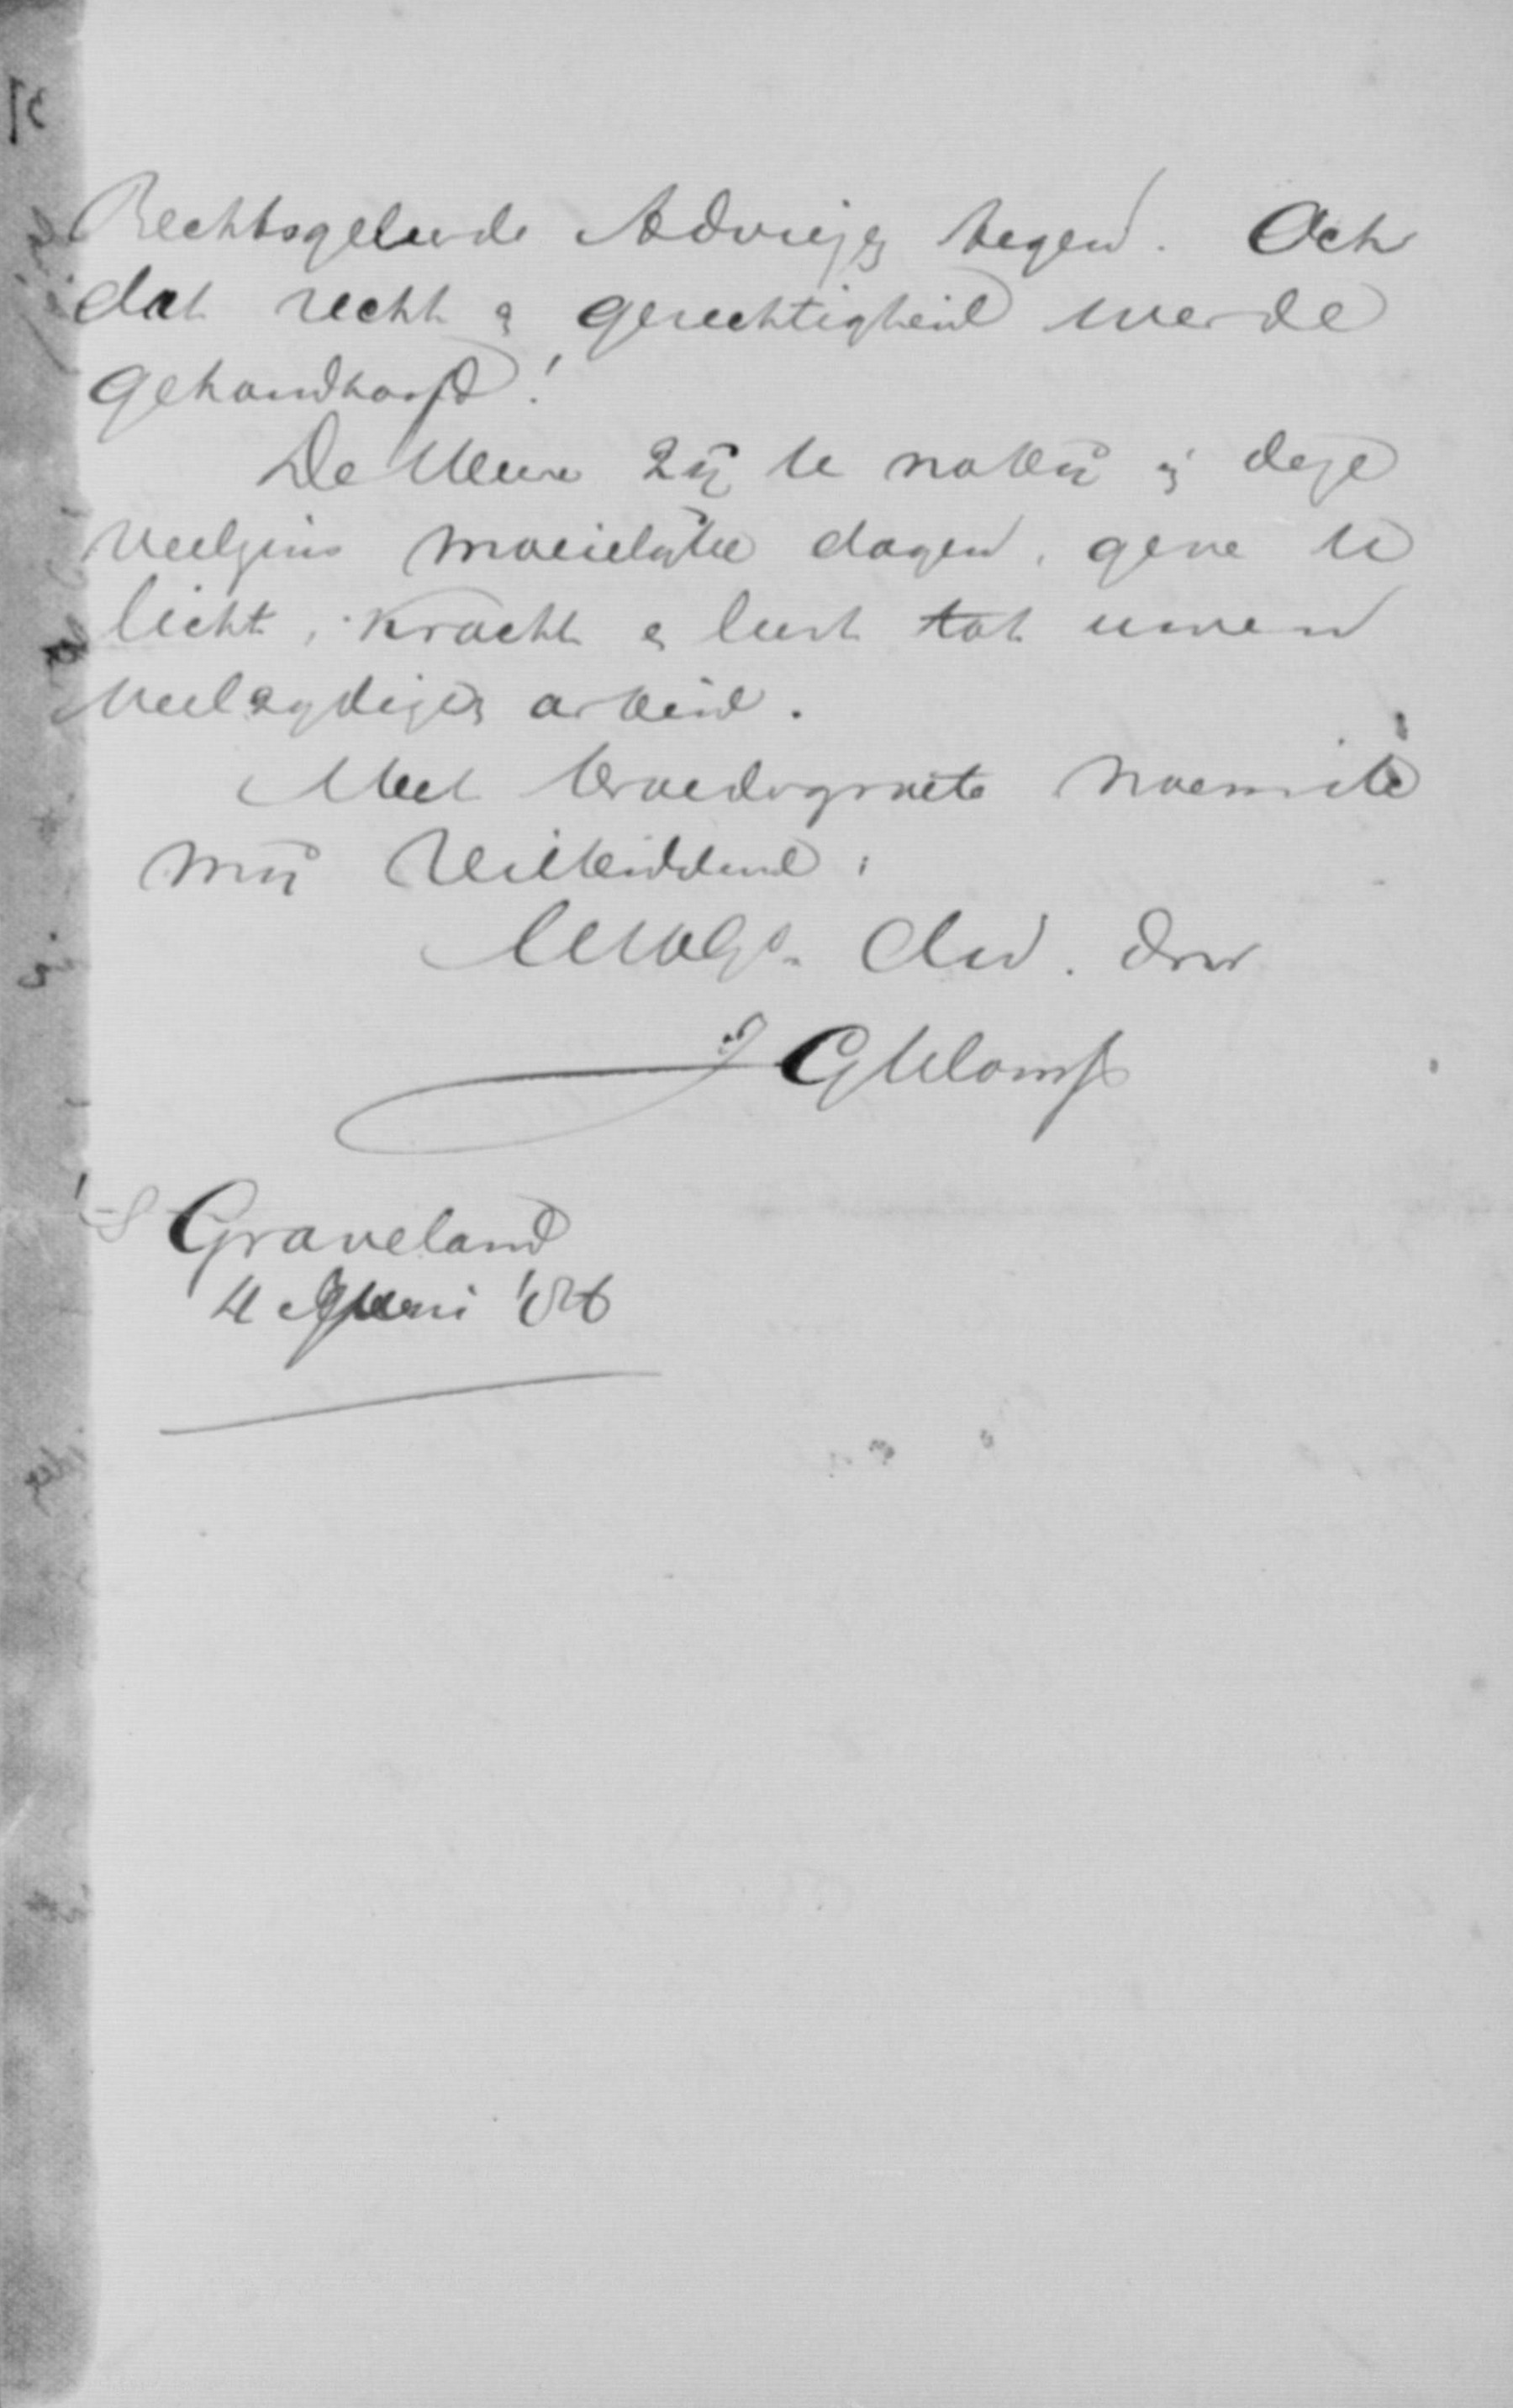 Rechtsgeleerde Adviezen tegen. Och
dat recht & gerechtigheid werde
gehandhaafd!
De Heere zij U nabij in deze
veelzins moeielijke dagen, geve U
licht, kracht & lust tot uwen
veelzijdigen arbeid.
Met broedergroete noem ik
mij Heilbiddend,
Uw dw. dnr
'S Graveland
4 Juni '86